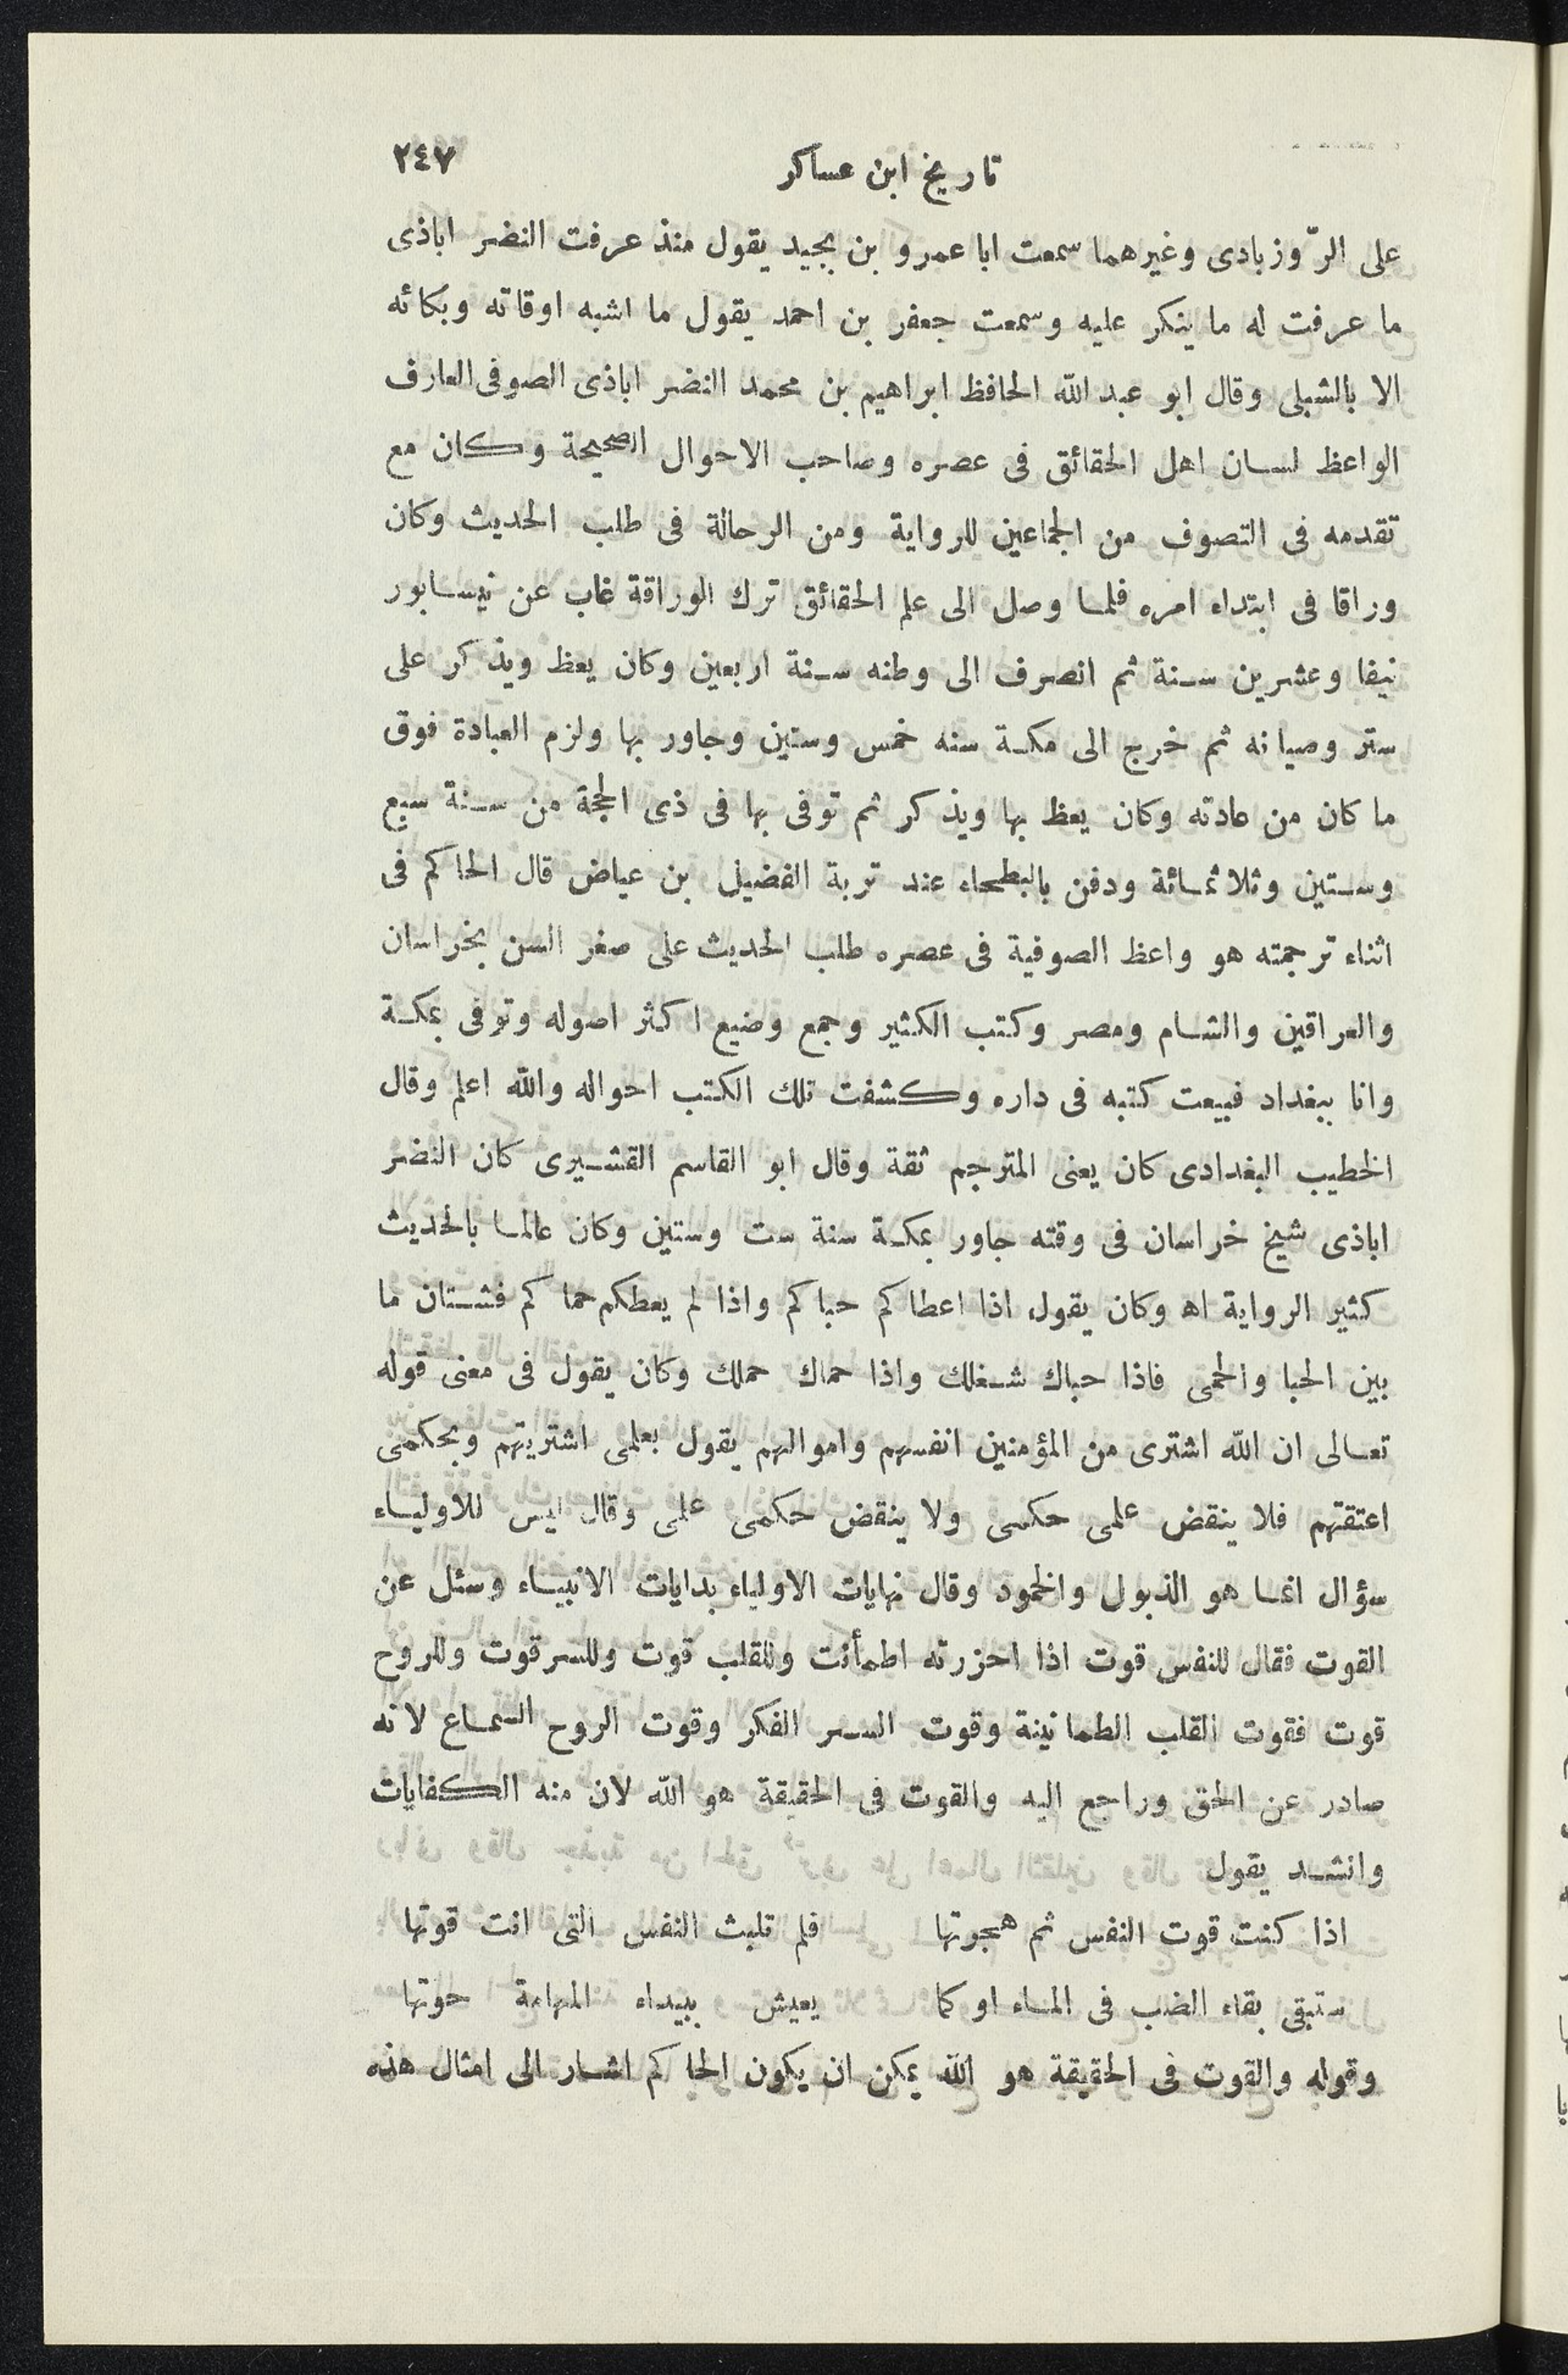 تاريخ ابن عساكر ٢٤٧
على الرّوزبادى وغيرهما سمعت ابا عمرو بن بجيد يقول منذ عرفت النضر اباذى
ما عرفت له ما ينكر عليه وسمعت جعفر بن احمد يقول ما اشبه اوقاته وبكائه
الا بالشبلى وقال ابو عبد الله الحافظ ابراهيم بن محمد النضر اباذى الصوفى العارف
الواعظ لسان اهل الحقائق فى عصره وصاحب الاحوال الصحيحة وكان مع
تقدمه فى التصوف من الجماعين للرواية ومن الرحالة فى طلب الحديث وكان
وراقا فى ابتداء امره فلما وصل الى علم الحقائق ترك الوراقة غاب عن نيسابور
نيفا وعشرين سنة ثم انصرف الى وطنه سنة اربعين وكان يعظ ويذكر على
ستر وصيانه ثم خرج الى مكة سنه خمس وستين وجاور بها ولزم العبادة فوق
ما كان من عادته وكان يعظ بها ويذكر ثم توفى بها فى ذى الحجة من سنة سبع
وستين وثلاثمائة ودفن بالبطحاء عند تربة الفضيل بن عياض قال الحاكم فى
اثناء ترجمته هو واعظ الصوفية فى عصره طلب الحديث على صغر السن بخراسان
والعراقين والشام ومصر وكتب الكثير وجمع وضيع اكثر اصوله وتوفى بمكة
وانا ببغداد فبيعت كتبه فى داره وكشفت تلك الكتب احواله والله اعلم وقال
الخطيب البغدادى كان يعنى المترجم ثقة وقال ابو القاسم القشيرى كان النضر
اباذى شيخ خراسان فى وقته جاور بمكة سنة ست وستين وكان عالما بالحديث
كثير الرواية اه وكان يقول اذا اعطاكم حباكم واذا لم يعطكم حماكم فشتان ما
بين الحبا والحمى فاذا حباك شغلك واذا حماك حملك وكان يقول فى معنى قوله
تعالى ان الله اشترى من المؤمنين انفسهم واموالهم يقول بعلمى اشتريتهم وبحكمى
اعتقتهم فلا ينقض علمى حكمى ولا ينقض حكمى علمى وقال ليس للاولياء
سؤال انما هو الذبول والخمود وقال نهايات الاولياء بدايات الانبياء وسئل عن
القوت فقال للنفس قوت اذا احزرته اطمأنت وللقلب قوت وللسر قوت وللروح
قوت فقوت القلب الطمانينة وقوت السر الفكر وقوت الروح السماع لانه
صادر عن الحق وراجع اليه والقوت فى الحقيقة هو الله لان منه الكفايات
وانشد يقول
اذا كنت قوت النفس ثم هجرتها فلم تلبث النفس التى انت قوتها
ستبقى بقاء الضب فى الماء او كما يعيش ببيداء المهامة حوتها
وقوله والقوت فى الحقيقة هو الله يمكن ان يكون الحاكم اشار الى امثال هذه